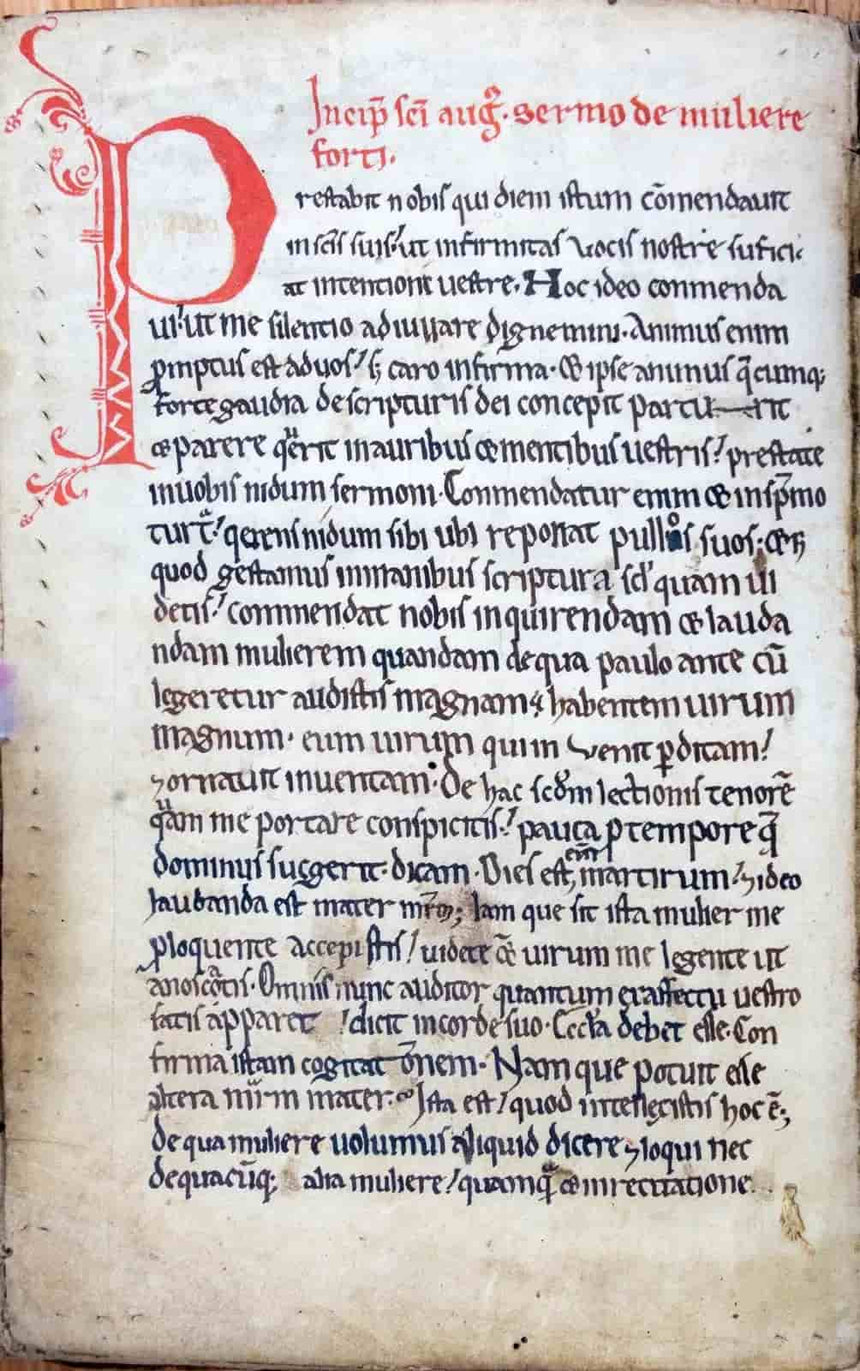 Incip̄ sc̄i aug̃. sermo de muliere
forti.
Prestabit nobis qui diem istum cōmendauit
in sc̄is suis: ut infirmitas vocis nostre sufici-
at intentioni uestre. Hoc ideo conmenda
ui: ut me silentio adiuuare dignemini. Animus enim
p̄mptus est ad uos: s; caro infirma. & ipse animus q̄cumq;
forte gaudia de scripturis dei concepit partu—rit
& parere q̄rit in auribus & mentibus uestris: prestate
in uobis nidum sermoni. Conmendatur enim & in sp̄mo
turt̃: querens nidum sibi ubi reponat pullos suos;
quod gestamus in manibus scriptura scł quam ui
detis: conmendat nobis inquirendam & lauda
ndam mulierem quandam de qua paulo ante cū
legeretur audistis magnam; habentem uirum
magnum. eum uirum qui in venit p̱ditam:
⁊ ornauit inuentam. De hac scđm lectionis tenorē
q̃m me portare conspicitis: pauca p tempore q̄
dominus suggerit. dicam. Dies est enī martirum: ⁊ ideo
laudanda est mater mr̃m; Iam que sit ista mulier me
p̱loquente accepistis: uidete & uirum me legente ut
anoscatis. Omnis nunc auditor quantum ex affectu uestro
satis apparet: dicit in corde suo. Eccłia debet esse. Con
firma istam cogitat̄onem. Nam que potuit esse
altera mr̃m mater. Ista est: quod intellegistis hoc ē;
de qua muliere uolumus aliquid dicere ⁊ loqui nec
de quacūq; alia muliere: quamq̃ & in recitatione